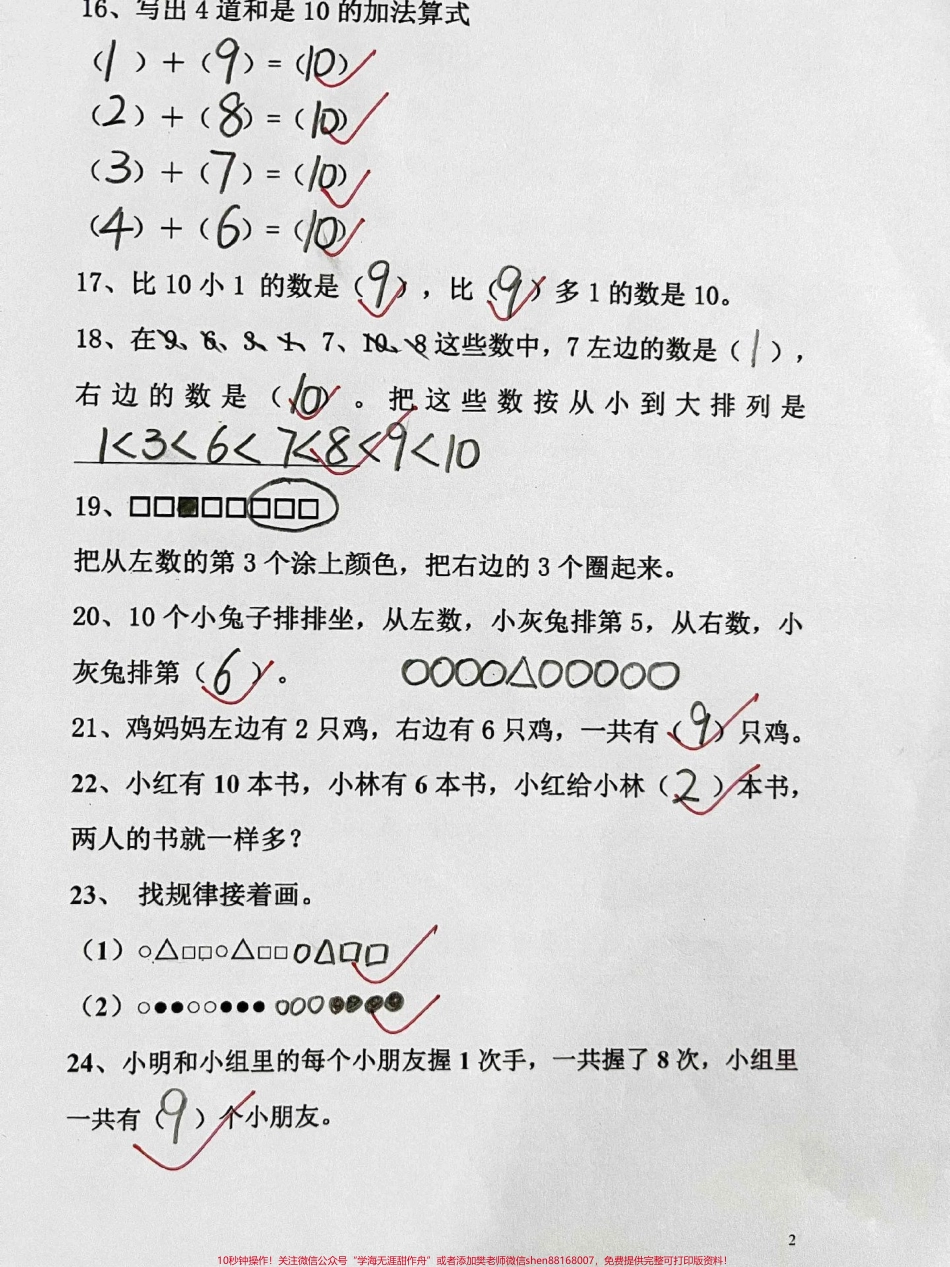 16、写出 4 道和是 10 的加法算式
（1）＋（9）＝（10）
（2）＋（8）＝（10）
（3）＋（7）＝（10）
（4）＋（6）＝（10）
17、比 10 小 1 的数是（9），比（9）多 1 的数是 10。
18、在 9、6、3、1、7、10、8 这些数中，7 左边的数是（1），
右边的数是（10）。把这些数按从小到大排列是
1<3<6<7<8<9<10
19、□□■□□□□□
把从左数的第 3 个涂上颜色，把右边的 3 个圈起来。
20、10 个小兔子排排坐，从左数，小灰兔排第 5，从右数，小
灰兔排第（6）。 ○○○○△○○○○○
21、鸡妈妈左边有 2 只鸡，右边有 6 只鸡，一共有（9）只鸡。
22、小红有 10 本书，小林有 6 本书，小红给小林（2）本书，
两人的书就一样多？
23、 找规律接着画。
（1）○△□□○△□□○△□□
（2）○●●○○●●●○○○●●●●
24、小明和小组里的每个小朋友握 1 次手，一共握了 8 次，小组里
一共有（9）个小朋友。
2
10秒钟操作！关注微信公众号“学海无涯甜作舟”或者添加樊老师微信shen88168007，免费提供完整可打印版资料！